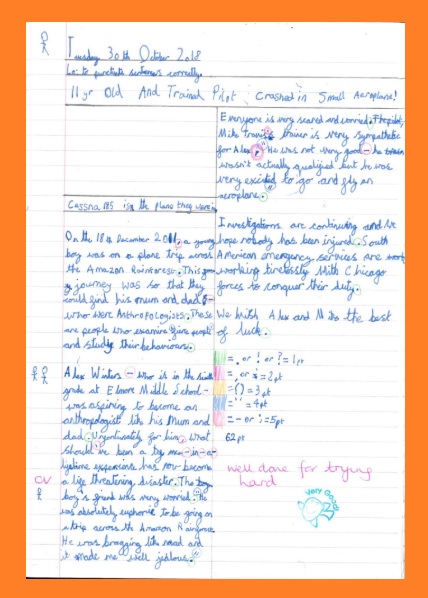 Tuesday 30th October 2018
Lo: to punctuate sentences correctly.
11 yr Old And Trained Pilot Crashed in Small Aeroplane!
Cassna 185 is the plane they were in
On the 18th December 2011, a young
boy was on a plane trip across
the Amazon Rainforest. This
journey was so that they
could find his mum and dad -
who were Anthropologists. These
are people who examine people
and study their behaviours.
Alex Winters - who is in the sixth
grade at Elmore Middle School -
was aspiring to become an
anthropologist like his Mum and
dad. Unfortunately for him, what
should've been a
lifetime experience has now become
a life threatening disaster. "The
boy's friend was very worried. "He
was absolutely euphoric to be going on
a trip across the Amazon Rainforest.
He was bragging like mad and
it made me well jealous."
Everyone is very scared and worried. The pilot,
Mike Travis's trainer is very sympathetic
for Alex. "He was not very good - he
wasn't actually qualified but he was
very excited to go and fly an
aeroplane."
Investigations are continuing and we
hope nobody has been injured. South
American emergency services are
working tirelessly with Chicago
forces to conquer their duty.
We wish Alex and Mike the best
of luck.
= . or ! or ? = 1pt
= , or = 2pt
= () = 3pt
= ' ' = 4pt
= - or ; = 5pt
62pt
well done for trying
hard
CV
Very Good!